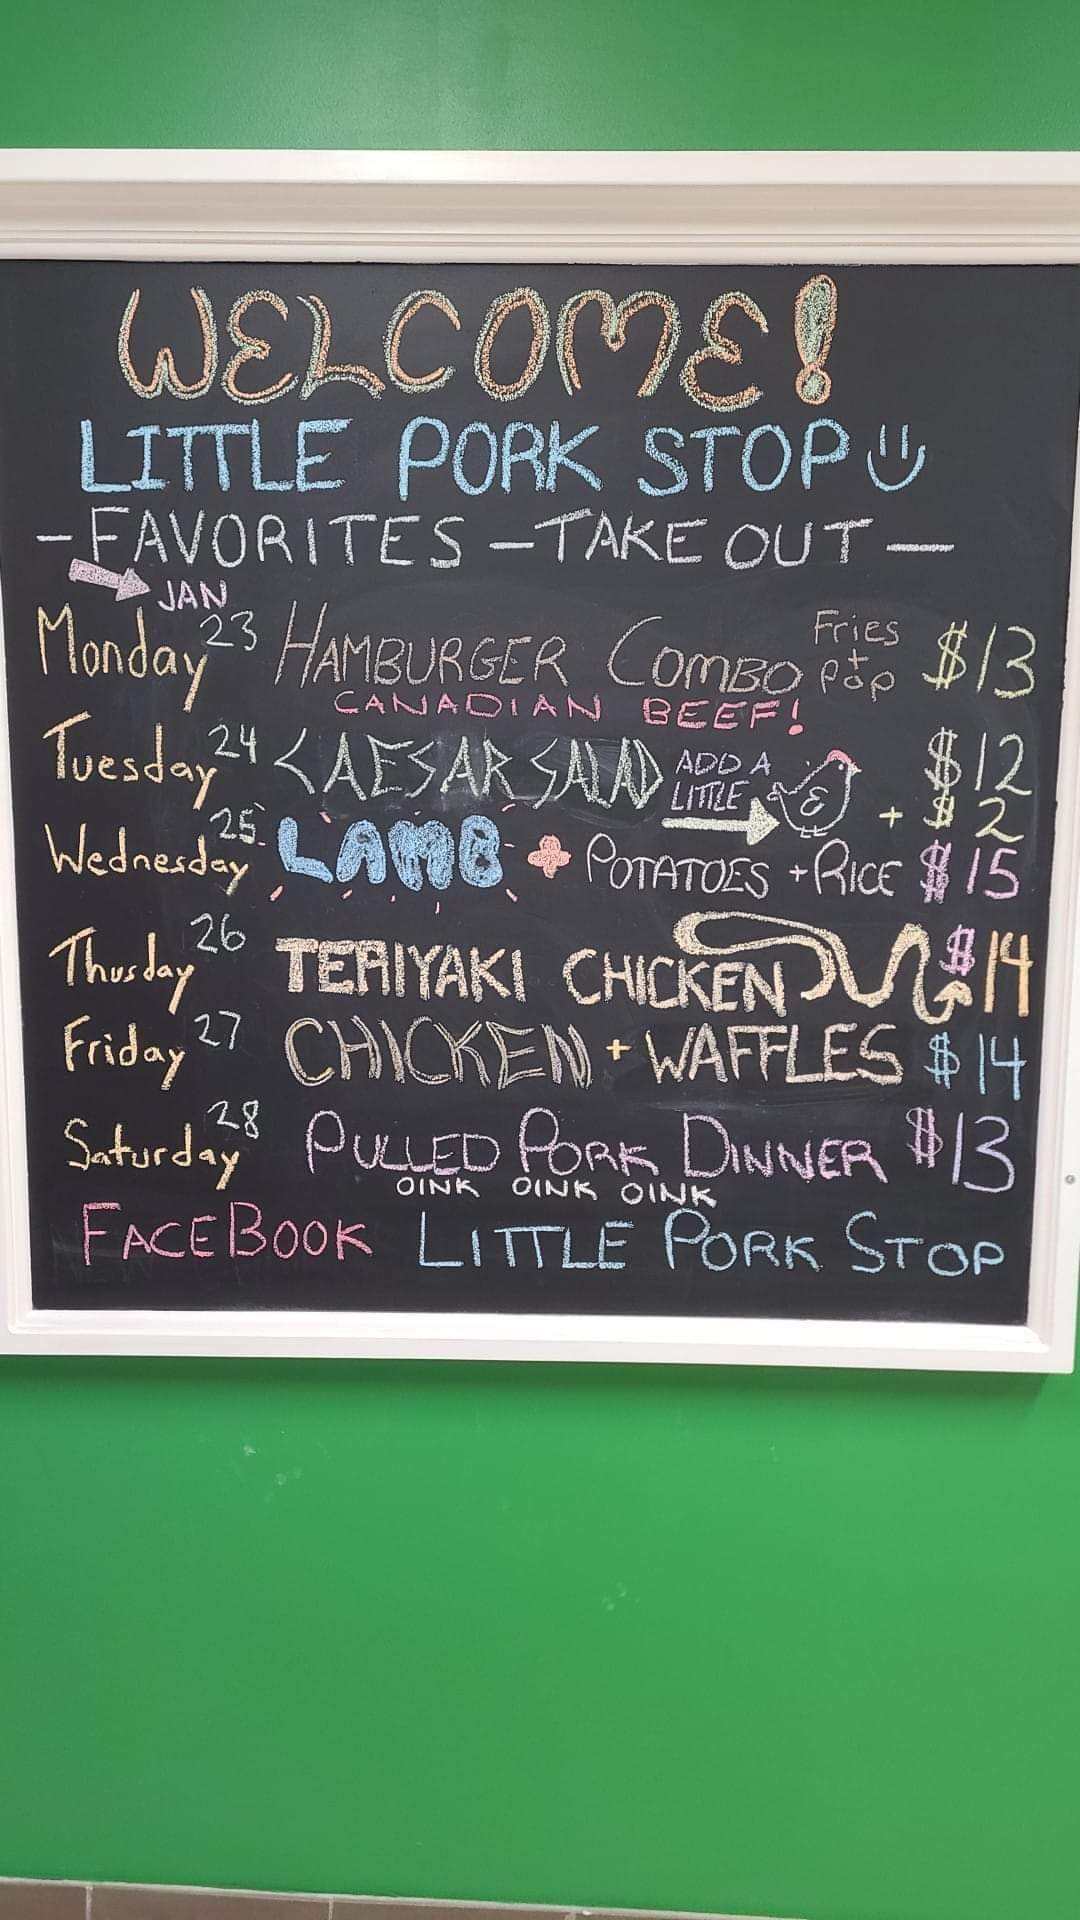 WELCOME!
LITTLE PORK STOP
- FAVORITES - TAKE OUT -
JAN
Monday 23 HAMBURGER COMBO Fries + pop $13
CANADIAN BEEF!
Tuesday 24 CAESAR SALAD ADD A LITTLE $12
+ $2
Wednesday 25 LAMB + POTATOES + RICE $15
Thusday 26 TERIYAKI CHICKEN $14
Friday 27 CHICKEN + WAFFLES $14
Saturday 28 PULLED PORK DINNER $13
OINK OINK OINK
FACEBOOK LITTLE PORK STOP